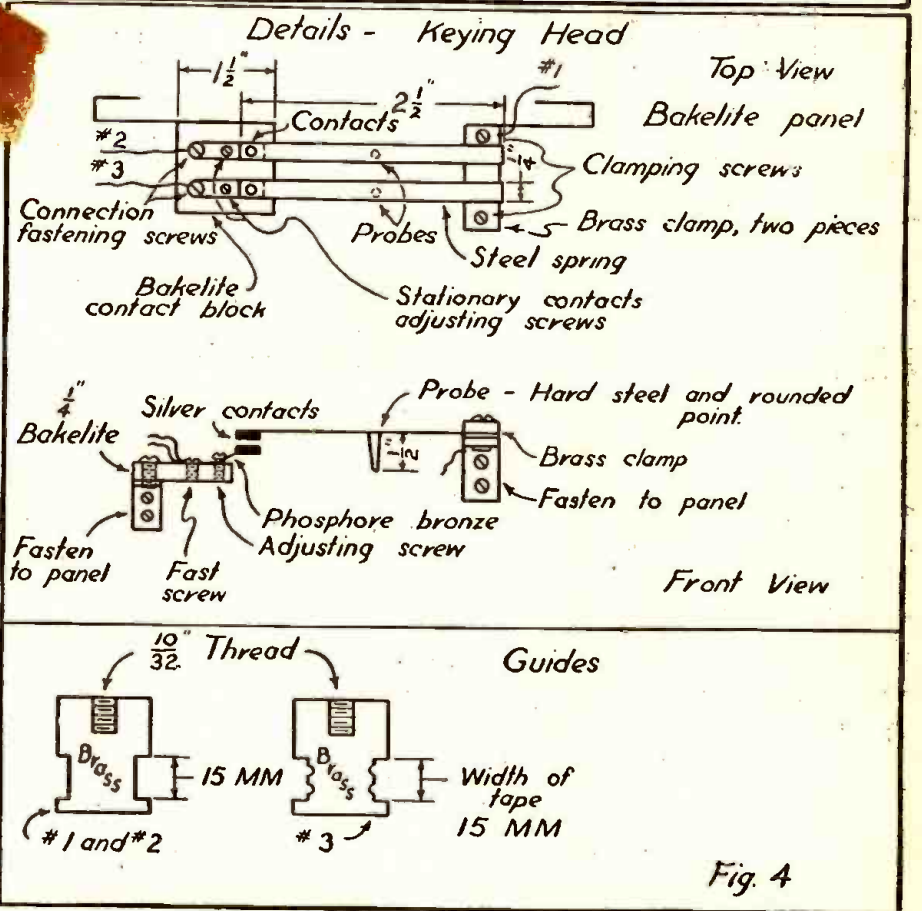 Details - Keying Head
1 1/2"
#1
Top View
2 1/2"
Bakelite panel
Contacts
#2
1/4"
Clamping screws
#3
Connection
fastening screws
Probes
Brass clamp, two pieces
Steel spring
Bakelite
contact block
Stationary contacts
adjusting screws
1/4"
Bakelite
Silver contacts
Probe - Hard steel and rounded
point.
1/2"
Brass clamp
Fasten to panel
Phosphore bronze
Adjusting screw
Fasten
to panel
Fast
screw
Front View
10/32" Thread
Guides
Brass
15 MM
Brass
Width of
tape
15 MM
#1 and #2
#3
Fig. 4